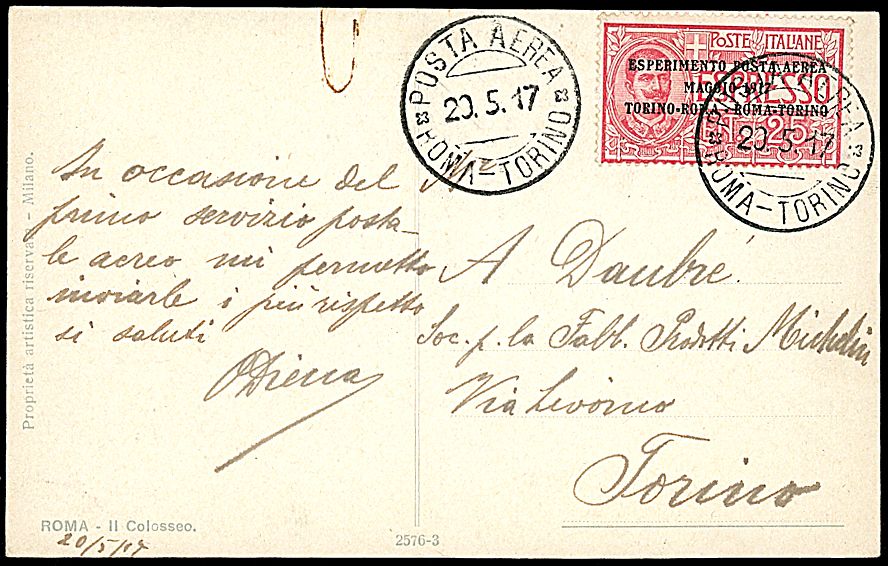 POSTA AEREA
20.5.17
ROMA-TORINO
POSTE ITALIANE
ESPERIMENTO POSTA AEREA
MAGGIO 1917
TORINO-ROMA · ROMA-TORINO
ESPRESSO
25
POSTA AEREA
20.5.17
ROMA-TORINO
Proprietà artistica riservata - Milano.
In occasione del
primo servizio posta-
le aereo mi permetto
inviarle i più rispetto
si saluti
ODiena
A Daubré
Soc. p. la Fabb. Prodotti Michelin
Via Livorno
Torino
ROMA - Il Colosseo.
20/5/17
2576-3